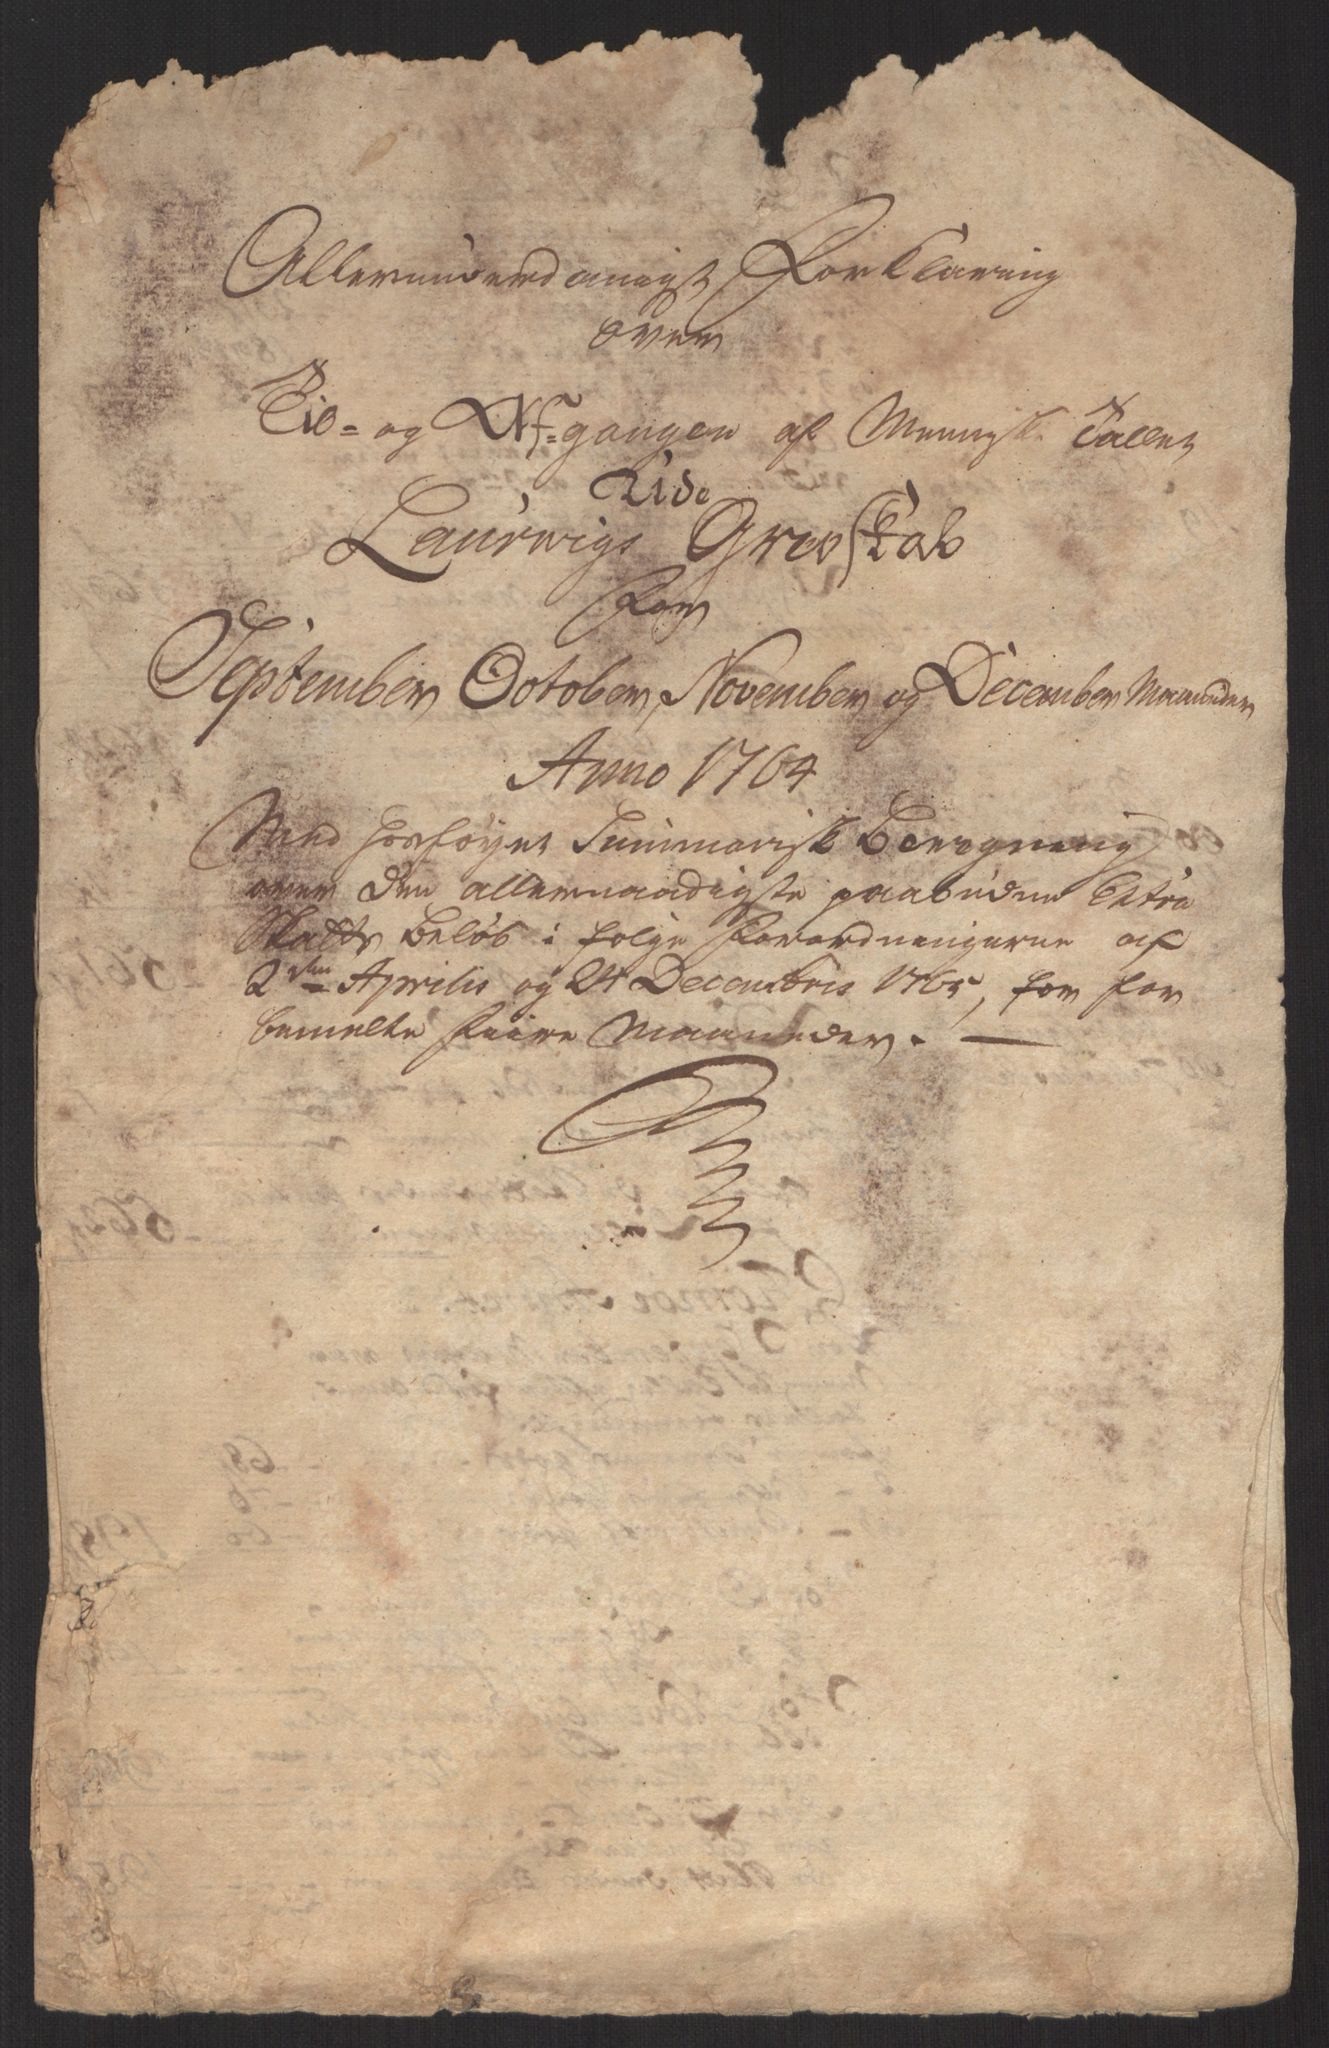 Allerunderdanigst Forklaring
over
Til- og Af-gangen af Mennyske Tallet
Udi
Laurwigs Grevskab
for
September October, November og December Maaneder
Anno 1764
Med hosføyet Summarisk Beregning
over den allernaadigste paabudne Extra
Skatts beløb i følge Forordningerne af
2den Aprilis og 24 Decembris 1765, for for
bemelte fiire Maaneder.